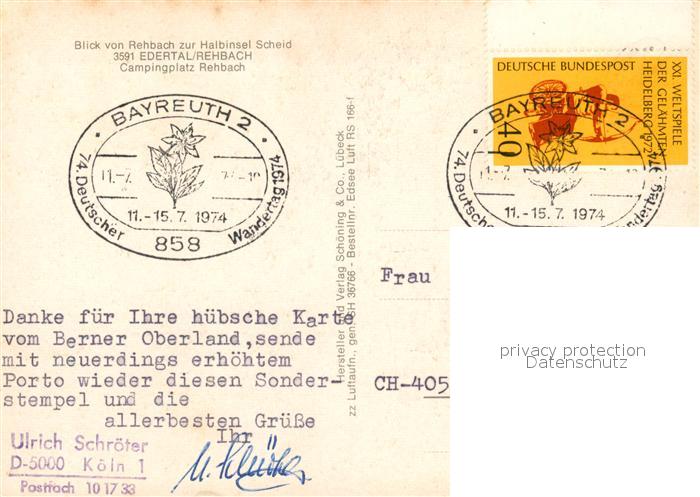 Blick von Rehbach zur Halbinsel Scheid
3591 EDERTAL/REHBACH
Campingplatz Rehbach
BAYREUTH 2
11.-7.
74. Deutscher Wandertag 1974
11.-15.7. 1974
858
DEUTSCHE BUNDESPOST
40
XXI. WELTSPIELE
DER GELÄHMTEN
HEIDELBERG 1972
BAYREUTH 2
74. Deutscher Wandertag 1974
11.-15.7. 1974
Hersteller und Verlag Schöning & Co., Lübeck
zz Luftaufn., gen. SH 36766 - Bestellnr. Edsee Luft RS 166-f
Frau
CH-405
privacy protection
Datenschutz
Danke für Ihre hübsche Karte
vom Berner Oberland,sende
mit neuerdings erhöhtem
Porto wieder diesen Sonder-
stempel und die
allerbesten Grüße
Ihr
Ulrich Schröter
D-5000 Köln 1
Postfach 10 17 33